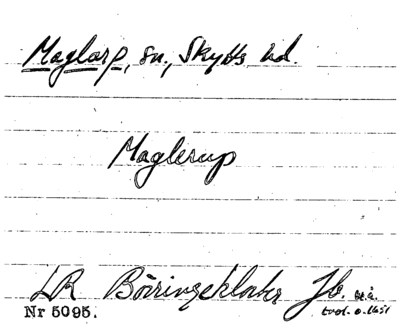 Maglarp, sn., Skytts hd.
Maglerup
LR Börringekloster Jb.
Nr 5095.